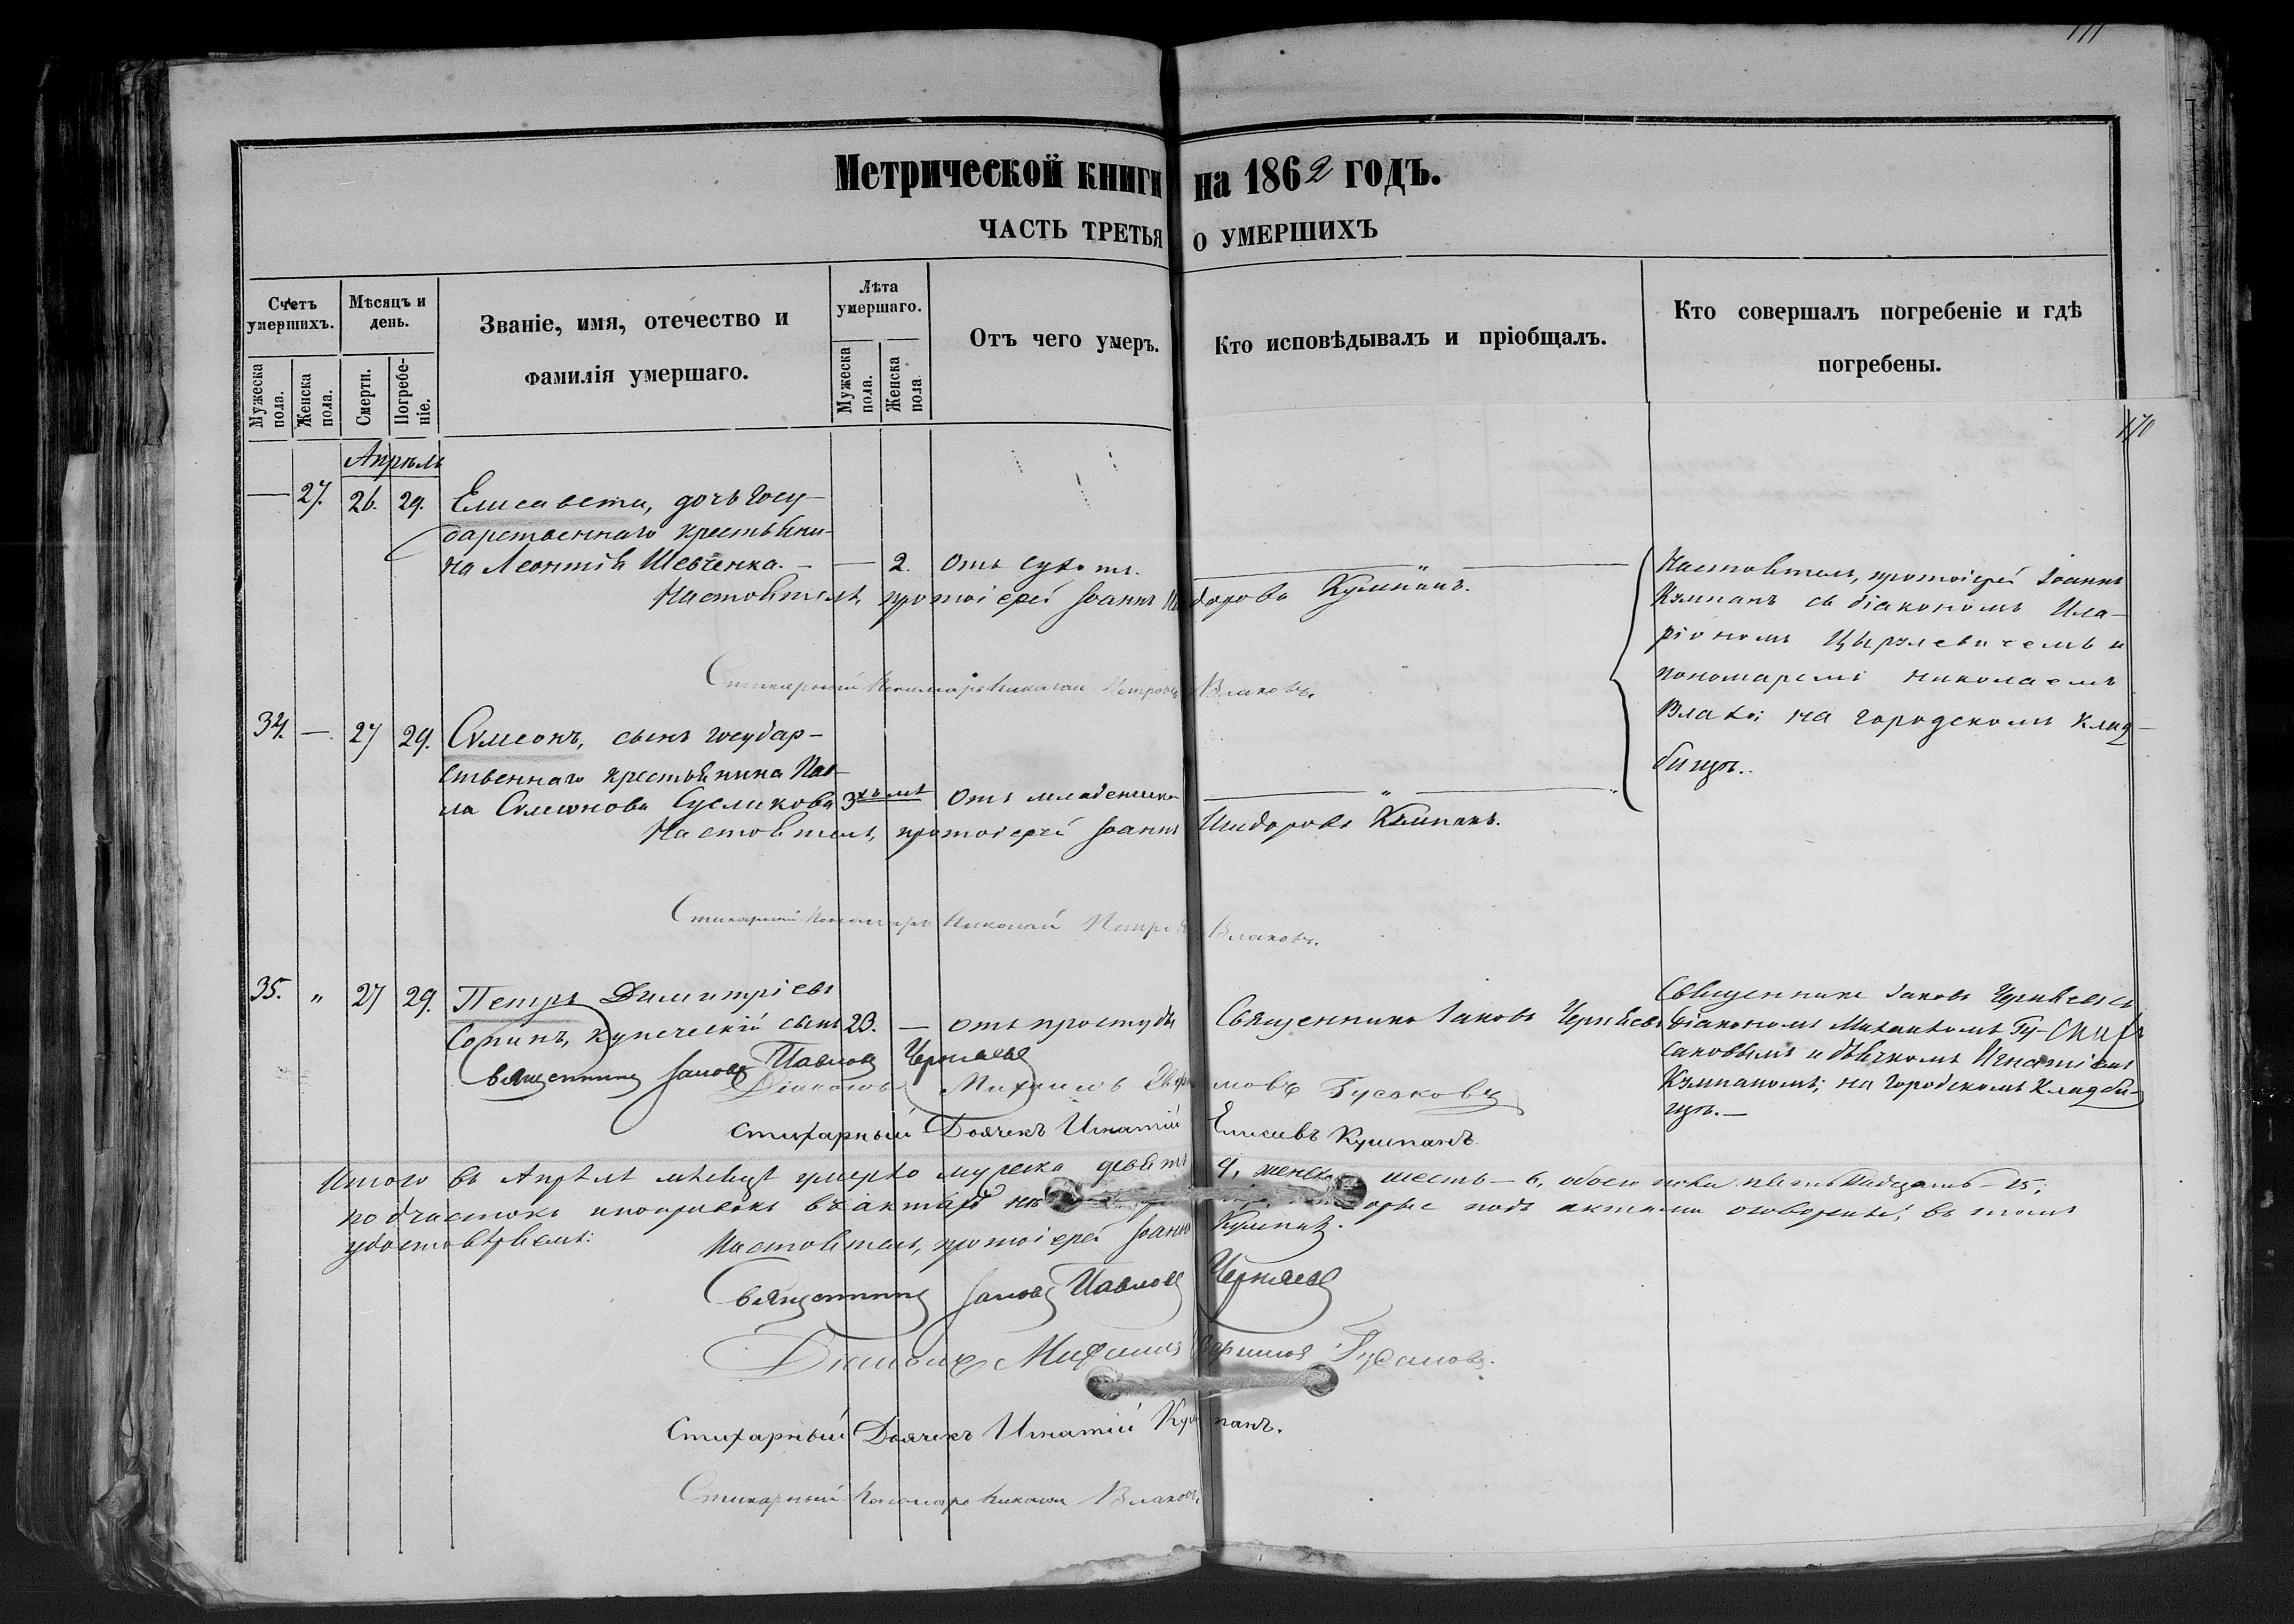 111
Метрической книги на 1862 годъ.
ЧАСТЬ ТРЕТЬЯ О УМЕРШИХЪ
Счетъ умершихъ.
Мужеска пола.
Женска пола.
Мѣсяцъ и день.
Смерти.
Погребеніе.
Званіе, имя, отечество и
фамилія умершаго.
Лѣта умершаго.
Мужеска пола.
Женска пола.
Отъ чего умеръ.
Кто исповѣдывалъ и пріобщалъ.
Кто совершалъ погребеніе и гдѣ
погребены.
170
Апрѣль
— 27. 26. 29. Елисавета, дочь госу-
дарственнаго крестьяни-
на Леонтія Шевченка. — — 2. отъ сухоты.
Настоятель, протоіерей Іоаннъ Исидоровъ Кумпанъ.
Стихарный Пономарь Николай Петровъ Влаховъ.
Настоятель, протоіерей Іоаннъ
Кумпанъ съ діакономъ Ила-
ріономъ Цырулевичемъ и
пономаремъ Николаемъ
Влахо; на городскомъ клад-
бищѣ.
34. — 27 29. Сѵмеонъ, сынъ государ-
ственнаго крестьянина Пав-
ла Сѵмеонова Сусликова 3хъ лѣ отъ младенческ
Настоятель, протоіерей Іоаннъ Исидоровъ Кумпанъ.
Стихарный Пономарь Николай Петровъ Влаховъ.
35. „ 27 29. Петръ Димитріевъ
Сопинъ, купеческій сынъ 20. — отъ простуды Священникъ Іаковъ Черняевъ
Священникъ Іаковъ Павловъ Черняевъ
Діаконъ Михаилъ Гусаковъ
Стихарный Дьячекъ Игнатій Елисеевъ Кумпанъ.
Священникъ Іаковъ Черняевъ съ
діакономъ Михаиломъ Гу-
саковымъ и дьячкомъ Игнатіемъ
Кумпаномъ; на городскомъ кладби-
щѣ. —
Итого въ Апрѣлѣ мѣсяцѣ умерло мужеска девять 9, женска шесть — 6, обоего пола пятьнадцать — 15;
подчистокъ и поправокъ въ актахъ подъ актами оговорены; въ томъ
удостовѣряемъ: Настоятель, протоіерей Іоаннъ Кумпанъ.
Священникъ Іаковъ Павловъ Черняевъ
Діаконъ Михаилъ Гусаковъ.
Стихарный Дьячекъ Игнатій Кумпанъ.
Стихарный Пономарь Николай Влаховъ.